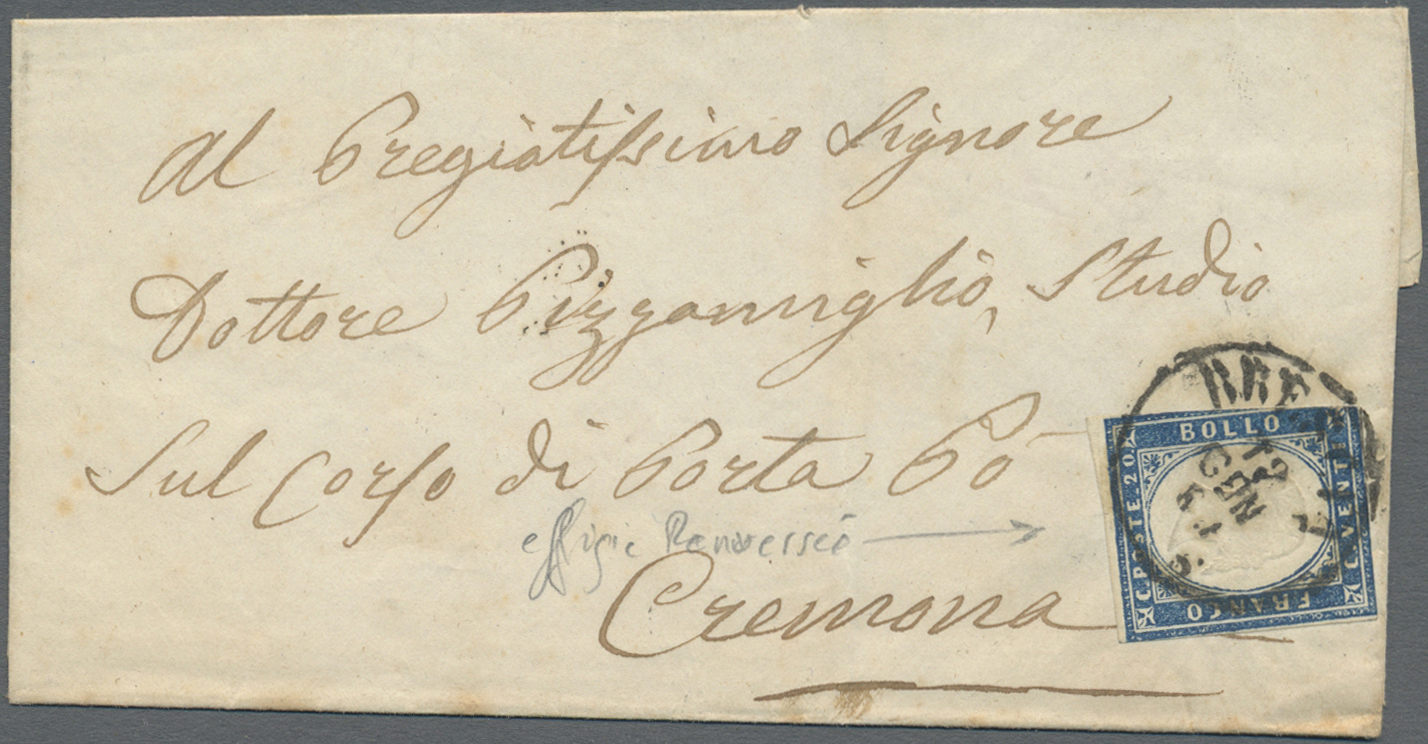 Al Pregiatissimo Signore
Dottore Pizzamiglio, Studio
Sul Corso di Porta Pò
effigie Renversée
Cremona
BRESCIA
GEN
BOLLO
C. POSTE 20
C. VENTI
FRANCO